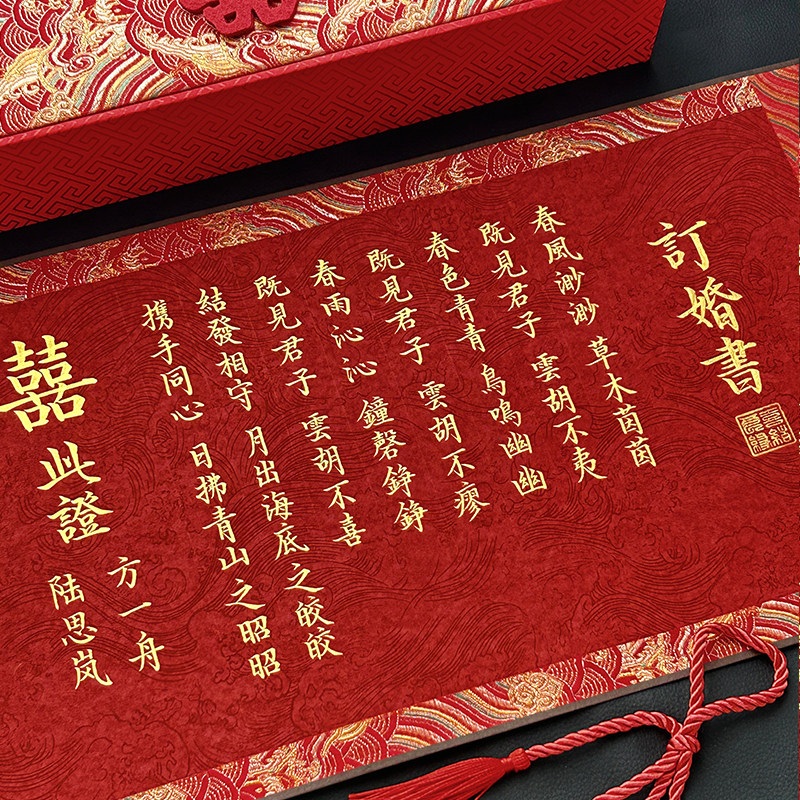 訂婚書
春風渺渺 草木茵茵
既見君子 雲胡不夷
春色青青 鳥鳴幽幽
既見君子 雲胡不瘳
春雨沁沁 鐘磬錚錚
既見君子 雲胡不喜
結發相守 月出海底之皎皎
攜手同心 日拂青山之昭昭
此證
方一舟
陆思岚
囍